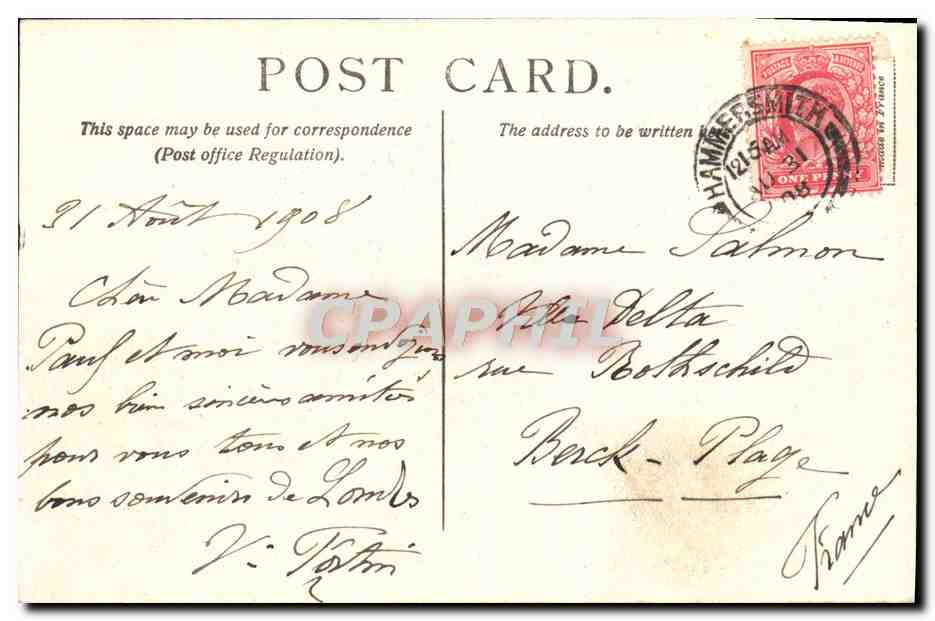 POST CARD.
This space may be used for correspondence
(Post office Regulation).
The address to be written
made in France
POSTAGE & REVENUE
ONE PENNY
HAMMERSMITH
12 15 AM
AU 31
08
31 Août 1908
Chère Madame
Paul et moi vous envoyons
nos bien sincères amitiés
pour vous tous et nos
bons souvenirs de Londres
V. Fortin
Madame Salmon
Villa Delta
rue Rothschild
Berck-Plage
France
CPAPHIL